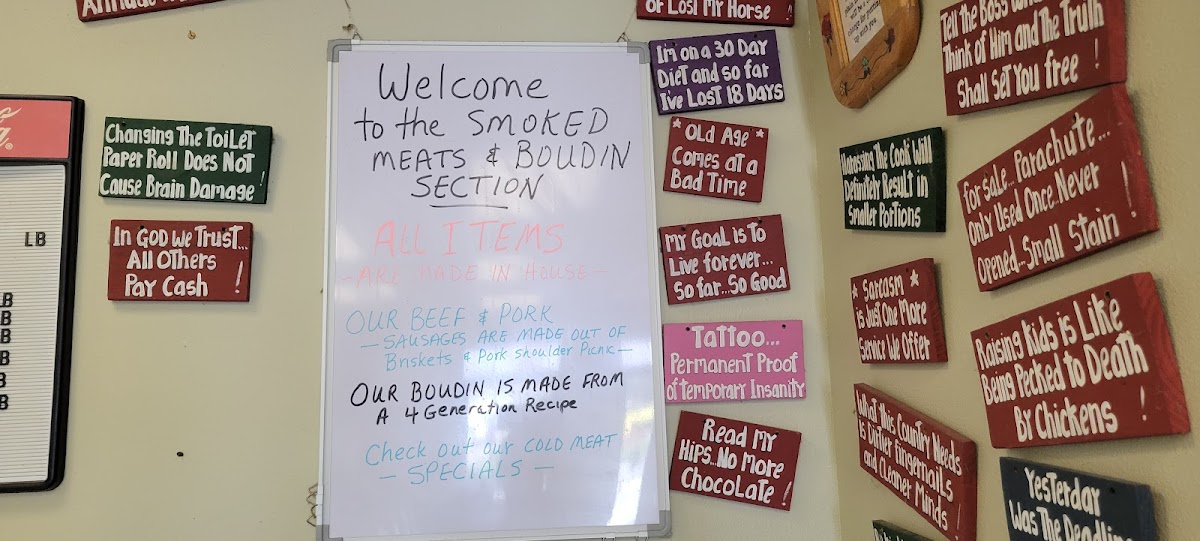 or Lost My Horse!
LB
B
B
B
B
B
B
Changing The Toilet
Paper Roll Does Not
Cause Brain Damage!
In God We Trust...
All Others
Pay Cash !
Welcome
to the SMOKED
MEATS & BOUDIN
SECTION
ALL ITEMS
- ARE MADE IN HOUSE -
OUR BEEF & PORK
- SAUSAGES ARE MADE OUT OF
Briskets & Pork Shoulder Picnic -
OUR BOUDIN IS MADE FROM
A 4 Generation Recipe
Check out our COLD MEAT
- SPECIALS -
I'm on a 30 Day
Diet and so far
I've Lost 18 Days
* Old Age *
Comes at a
Bad Time
My Goal is To
Live forever...
So far...So Good
Tattoo...
Permanent Proof
of Temporary Insanity
Read My
Hips...No More
Chocolate!
up with you.
Harassing The Cook Will
Definitely Result in
Smaller Portions
* Sarcasm *
is Just One More
Service We Offer
What This Country Needs
is Dirtier Fingernails
and Cleaner Minds!
Tell the Boss What
Think of Him and The Truth
Shall Set You free !
for Sale... Parachute...
Only Used Once..Never
Opened--Small Stain !
Raising Kids is Like
Being Pecked to Death
By Chickens !
Yesterday
Was The Deadline